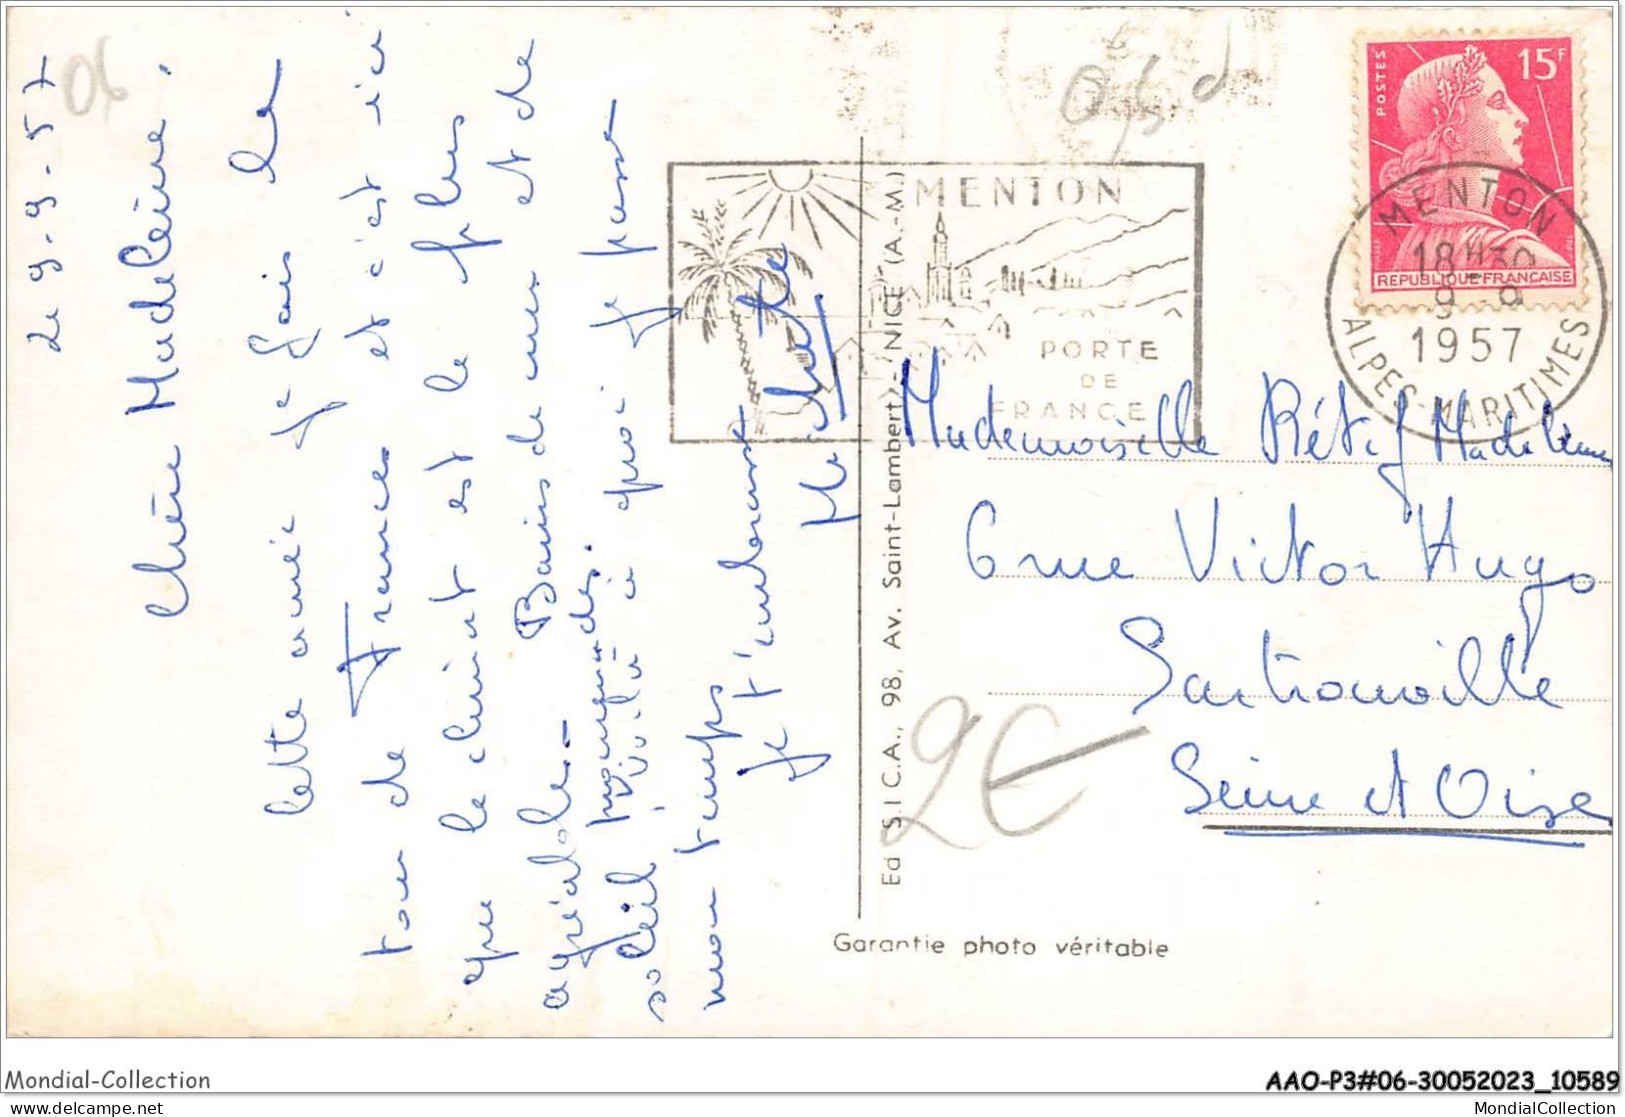 Le 9-9-57
Chère Madeleine.
Cette année je fais le
tour de France et c'est ici
que le climat est le plus
agréable. Bains de mer et de
soleil promenades.
Voilà à quoi je passe
mon temps
Je t'embrasse
06
MENTON
PORTE
DE
FRANCE
POSTES
15F
REPUBLIQUE FRANCAISE
MENTON
18H30
9 9
1957
ALPES-MARITIMES
Mademoiselle Rétif Madeleine
6 rue Victor Hugo
Sartrouville
Seine et Oise
2€
Ed. S.I.C.A., 98, Av. Saint-Lambert - NICE (A.-M.)
Garantie photo véritable
Mondial-Collection
AAO-P3#06-30052023_10589
delcampe.net
MondialCollection